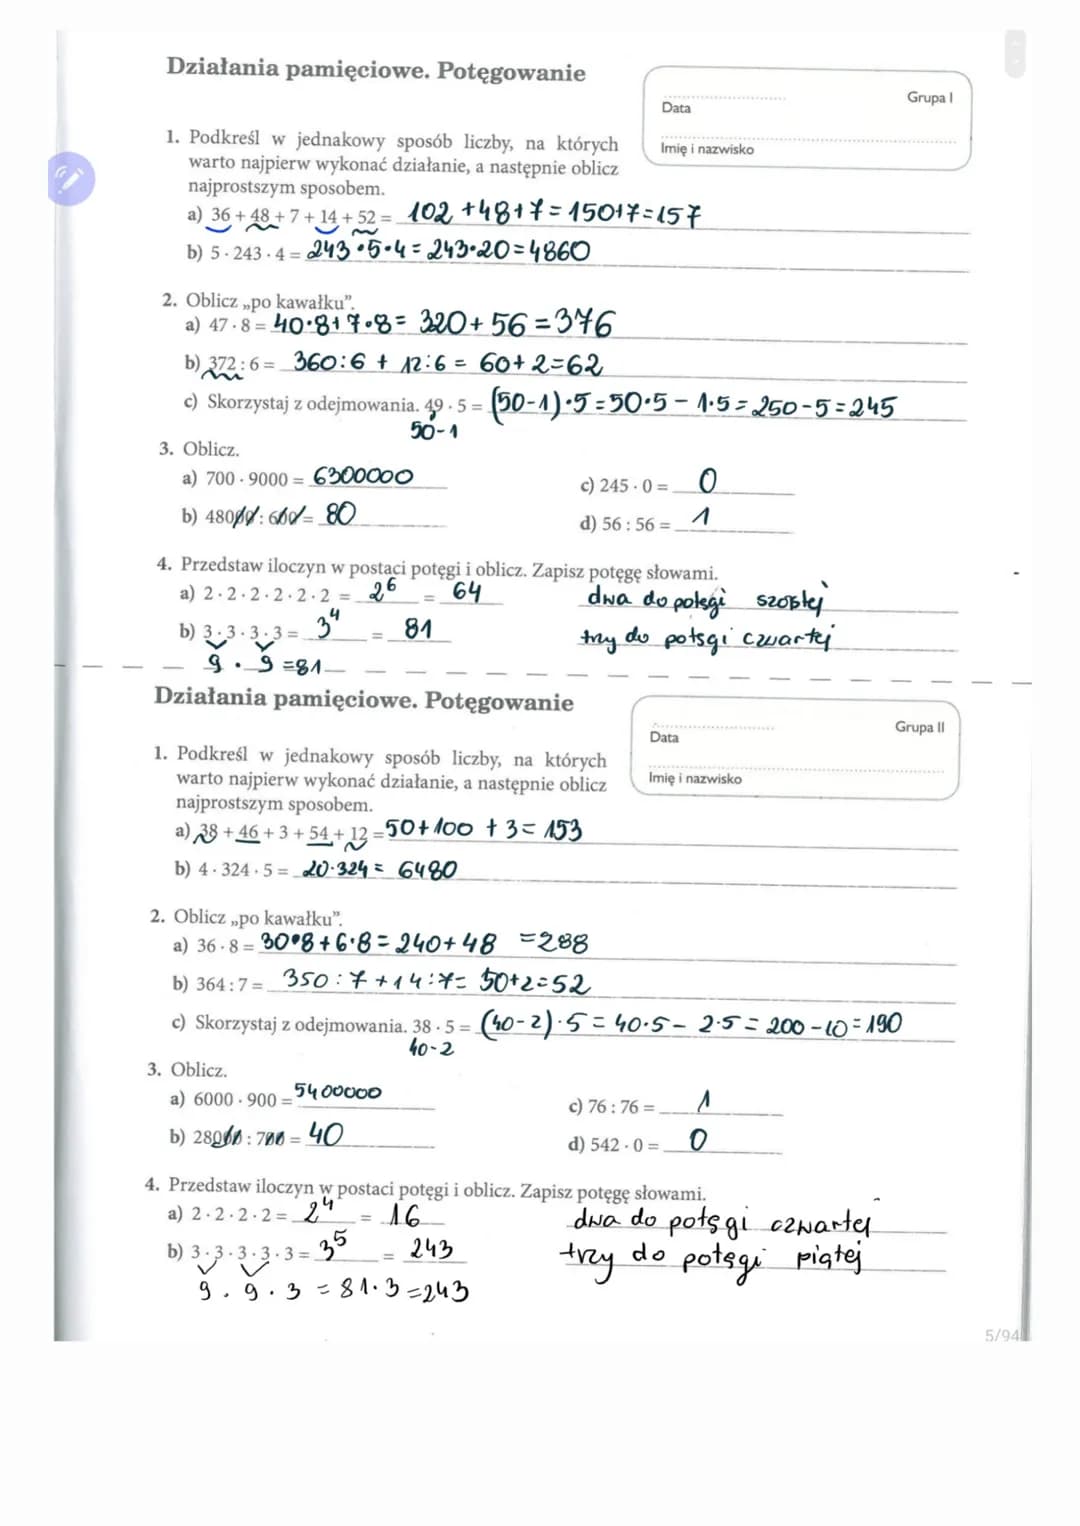 Działania pamięciowe. Potęgowanie
Grupa I
Data
Imię i nazwisko
1. Podkreśl w jednakowy sposób liczby, na których
warto najpierw wykonać działanie, a następnie oblicz
najprostszym sposobem.
a) 36 + 48 + 7 + 14 + 52 = 102 +48+7 = 150+7=157
b) 5 · 243 · 4 = 243 · 5 · 4 = 243 · 20 = 4860
2. Oblicz „po kawałku”.
a) 47 · 8 = 40·8+7·8 = 320 + 56 = 376
b) 372 : 6 = 360:6 + 12:6 = 60+2=62
c) Skorzystaj z odejmowania. 49 · 5 = (50-1)·5=50·5 - 1·5=250-5=245
50-1
3. Oblicz.
a) 700 · 9000 = 6300000
c) 245 · 0 = 0
b) 48000 : 600 = 80
d) 56 : 56 = 1
4. Przedstaw iloczyn w postaci potęgi i oblicz. Zapisz potęgę słowami.
a) 2 · 2 · 2 · 2 · 2 · 2 = 2⁶ = 64 dwa do potęgi szóstej
b) 3 · 3 · 3 · 3 = 3⁴ = 81 trzy do potęgi czwartej
9 · 9 =81
Działania pamięciowe. Potęgowanie
Grupa II
Data
Imię i nazwisko
1. Podkreśl w jednakowy sposób liczby, na których
warto najpierw wykonać działanie, a następnie oblicz
najprostszym sposobem.
a) 38 + 46 + 3 + 54 + 12 = 50+100 +3= 153
b) 4 · 324 · 5 = 20·324 = 6480
2. Oblicz „po kawałku”.
a) 36 · 8 = 30·8+6·8=240+48 =288
b) 364 : 7 = 350:7+14:7= 50+2=52
c) Skorzystaj z odejmowania. 38 · 5 = (40-2)·5=40·5- 2·5=200-10=190
40-2
3. Oblicz.
a) 6000 · 900 = 5400000
c) 76 : 76 = 1
b) 28000 : 700 = 40
d) 542 · 0 = 0
4. Przedstaw iloczyn w postaci potęgi i oblicz. Zapisz potęgę słowami.
a) 2 · 2 · 2 · 2 = 2⁴ = 16 dwa do potęgi czwartej
b) 3 · 3 · 3 · 3 · 3 = 3⁵ = 243 trzy do potęgi piątej
9 · 9 · 3 = 81·3=243
5/94